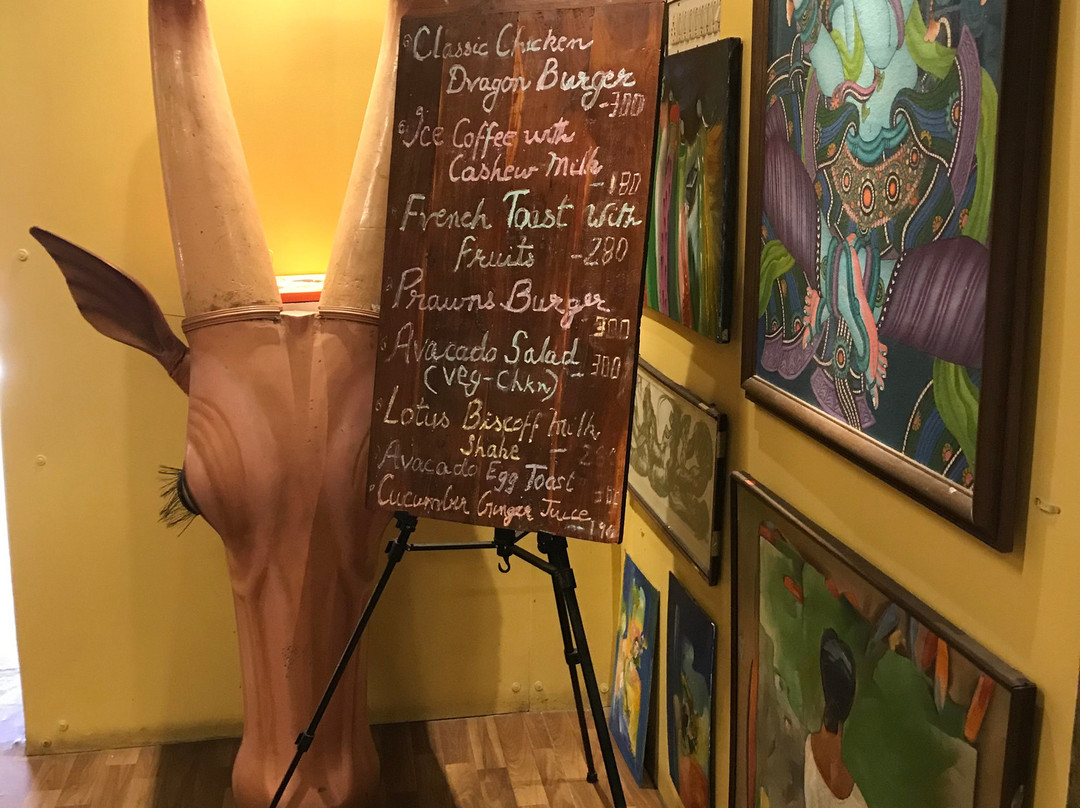 Classic Chicken
Dragon Burger
-300
Ice Coffee with
Cashew Milk
-180
French Toast With
fruits -280
Prawns Burger
300
Avacado Salad
(veg-chkn) - 300
Lotus Biscoff milk
Shake -
Avacado Egg Toast
Cucumber Ginger Juice